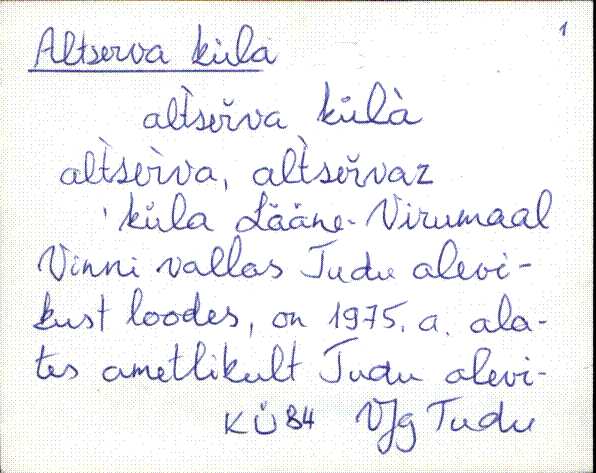 1
Altserva küla
al̀tser̆va külà
al̀tsèrva, al̀tser̆vaz
'küla Lääne-Virumaal
Vinni vallas Tudu alevi-
kust loodes, on 1975. a. ala-
tes ametlikult Tudu alevi-
KÜ 84 VJg Tudu